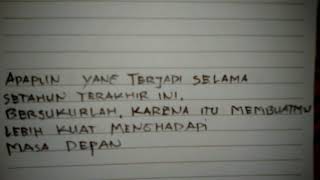 APAPUN YANG TERJADI SELAMA
SETAHUN TERAKHIR INI.
BERSUKURLAH, KARENA ITU MEMBUATMU
LEBIH KUAT MENGHADAPI
MASA DEPAN